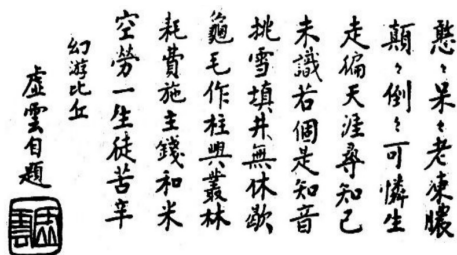 憨〻呆〻老凍膿
顛〻倒〻可憐生
走徧天涯尋知己
未識若個是知音
挑雪填井無休歇
龜毛作柱興叢林
耗費施主錢和米
空勞一生徒苦辛
幻游比丘
虛雲自題
虛雲